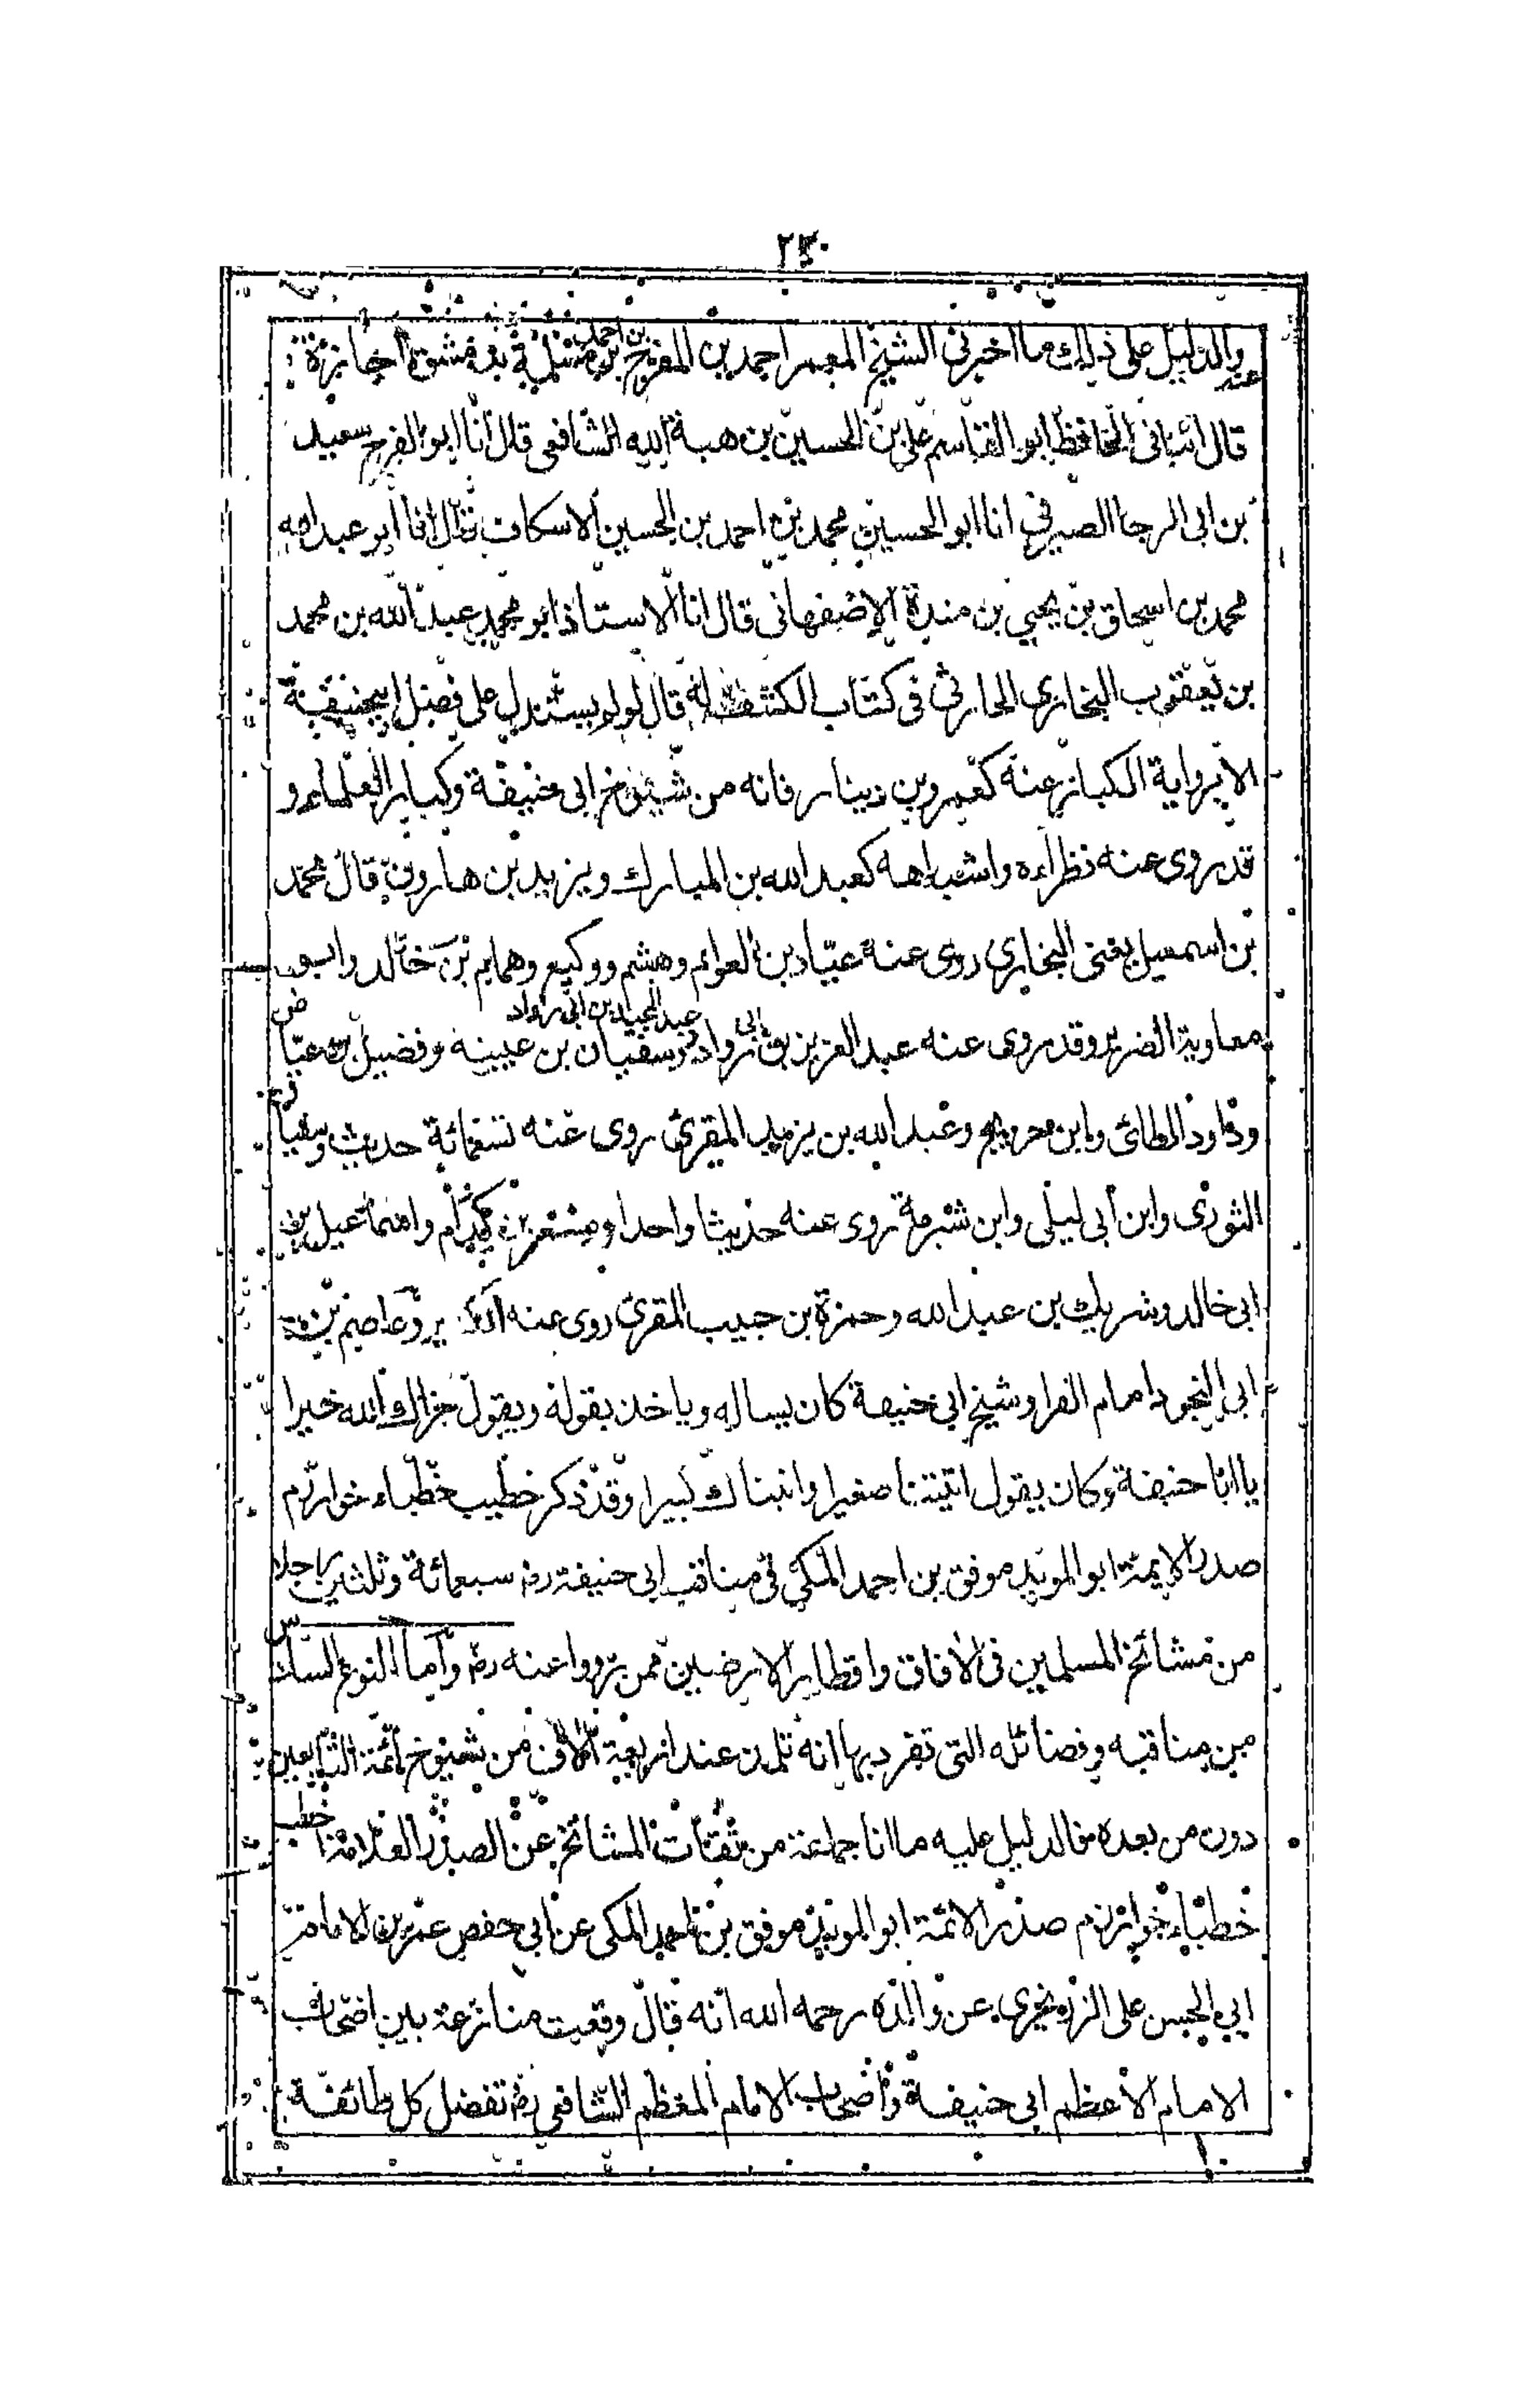 ٢٣٠
والدليل على ذلك ما اخبرنى الشيخ المعمر احمد بن المفرج بن احمد بن مسلمة فى بدمشق اجازة
عنه
قال انبانى الحافظ ابو القاسم على بن الحسين بن هبة الله الشافعى قال انا ابو الفرج سعيد
بن ابى الرجا الصيرفى انا ابو الحسين محمد بن احمد بن الحسين الاسكاف قال انا ابو عبد الله
محمد بن اسحاق بن يحيى بن مندة الاصفهانى قال انا الاستاذ ابو محمد عبد الله بن محمد
بن يعقوب البخارى الحارثى فى كتاب الكشف انه قال لو لم يستدل على فضل ابيحنيفة
الا برواية الكبار عنه كعمرو بن دينار فانه من شيوخ ابى حنيفة وكبار العلماء و
قد روى عنه نظراءه واشباهه كعبد الله بن المبارك ويزيد بن هارون قال محمد
بن اسمعيل يعنى البخارى روى عنه عباد بن العوام وهشيم ووكيع وهمام بن خالد وابو
معاوية الضرير وقد روى عنه عبد العزيز بن ابى رواد وعبد المجيد بن ابى رواد وسفيان بن عيينه وفضيل بن عياض
وداود الطائى وابن جريج وعبد الله بن يزيد المقرئ روى عنه تسعمائة حديث وسفيان
الثورى وابن ابى ليلى وابن شبرمة روى عنه حديثا واحدا ومسعر بن كدام واسماعيل بن
ابى خالد وشريك بن عبد الله وحمزة بن حبيب المقرئ روى عنه وعاصم بن
ابى النجود امام القرا وشيخ ابى حنيفة كان يساله وياخذ بقوله ويقول جزاك الله خيرا
يا ابا حنيفة وكان يقول اتيتنا صغيرا واتيناك كبيرا وقد ذكر خطيب خطباء خوارزم
صدر الايمة ابو المويد موفق بن احمد المكى فى مناقب ابى حنيفة رض سبعمائة وثلثين رجلا
من مشائخ المسلمين فى الافاق واقطار الارضين ممن رووا عنه رض واما النوع السادس
من مناقبه وفضائله التى تفرد بها انه تلمذ عند اربعة الاف من شيوخ ائمة التابعين
دون من بعده فالدليل عليه ما انا جماعة من ثقات المشائخ عن الصدر العلامة خطيب
خطباء خوارزم صدر الائمة ابو المويد موفق بن احمد المكى عن ابى حفص عمر بن الامام
ابى الحسن على الزرنجرى عن والده رحمه الله انه قال وقعت منازعة بين اصحاب
الامام الاعظم ابى حنيفة واصحاب الامام المعظم الشافعى رض تفضل كل طائفة